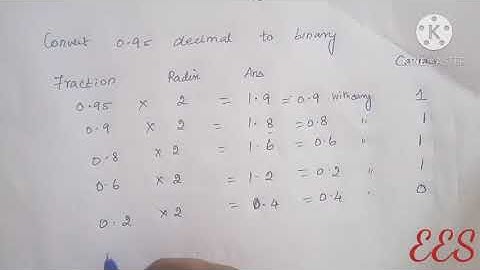 Convert 0.95 decimal to binary
Fraction Radix Ans
0.95 × 2 = 1.9 = 0.9 with carry 1
0.9 × 2 = 1.8 = 0.8 " 1
0.8 × 2 = 1.6 = 0.6 " 1
0.6 × 2 = 1.2 = 0.2 " 1
0.2 × 2 = 0.4 = 0.4 " 0
EES